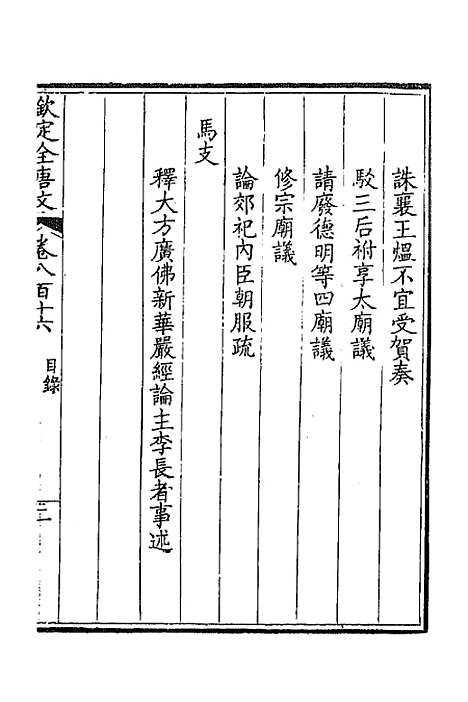 誅襄王熅不宜受賀奏
駁三后祔享太廟議
請廢德明等四廟議
修宗廟議
論郊祀內臣朝服疏
馬支
釋大方廣佛新華嚴經論主李長者事述
欽定全唐文 卷八百十六 目錄 二